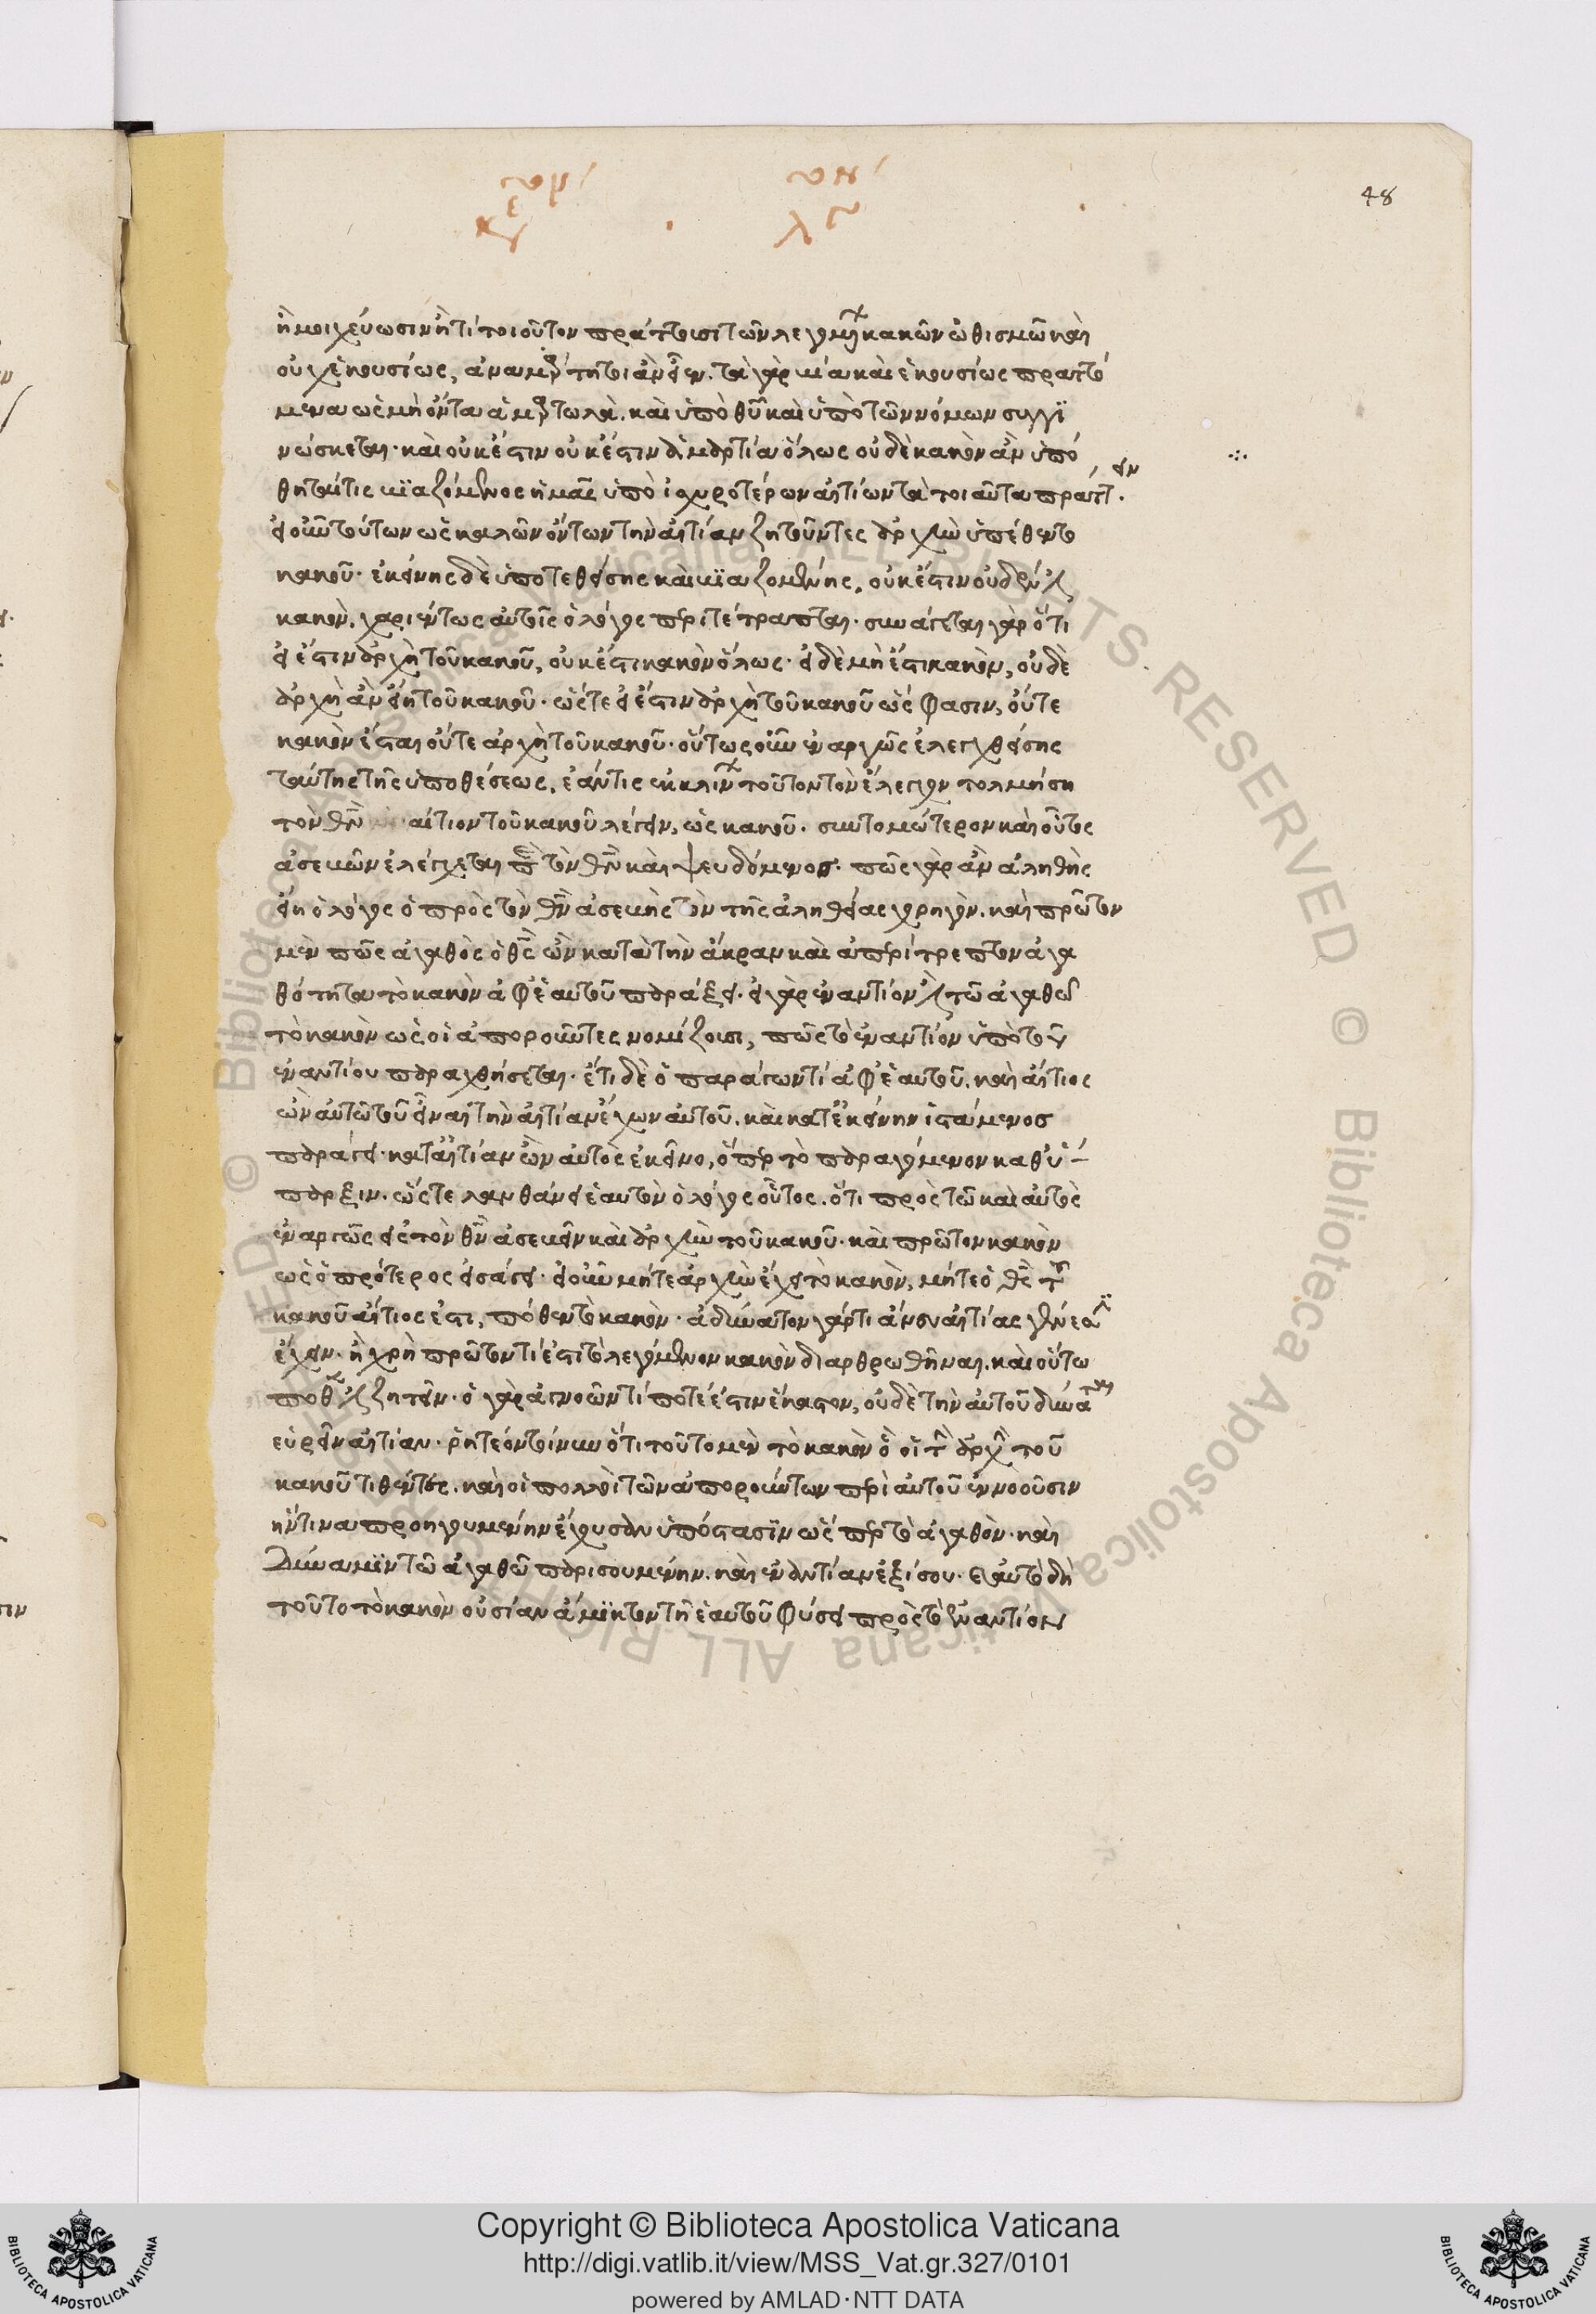 48
ἢ μοιχεύωσιν ἤ τι τοιοῦτον πράττωσι τῶν λεγομένων κακῶν ὠθισμῶ καὶ
οὐχ ἑκουσίως, ἀναμάρτητοι ἂν εἶεν. τὰ γὰρ βία καὶ ἑκουσίως πραττό
μενα ὡς μὴ ὄντα ἁμαρτωλὰ. καὶ ὑπὸ θεοῦ καὶ ὑπὸ τῶν νόμων συγγϊ
νώσκεται· καὶ οὐκ ἔστιν οὐκ ἔστιν ἁμαρτία ὅλως οὐδὲ κακὸν ἂν ὑπό
θηταί τις βϊαζόμενος ἡμᾶς ὑπὸ ἰσχυροτέρων αἰτίων τὰ τοιαῦτα πράττειν.
εἰ οὖν τούτων ὡς κακῶν ὄντων τὴν αἰτίαν ζητοῦντες ἀρχὴν ὑπέθεντο
κακοῦ. ἐκείνης δὲ ὑποτεθείσης καὶ βϊαζομένης, οὐκέτι οὐδὲν
κακὸν, χαριέντως αὐτοῖς ὁ λόγος περιτέτραπται. συνάγεται γὰρ ὅτι
εἰ ἔστιν ἀρχὴ τοῦ κακοῦ, οὐκ ἔστι κακὸν ὅλως· εἰ δὲ μὴ ἔστι κακὸν, οὐδὲ
ἀρχὴ ἂν εἴη τοῦ κακοῦ· ὥστε εἰ ἔστιν ἀρχὴ τοῦ κακοῦ ὥς φασιν, οὔτε
κακὸν ἔσται οὔτε ἀρχὴ τοῦ κακοῦ· οὕτως οὖν ἐναργῶς ἐλεγχθείσης
ταύτης τῆς ὑποθέσεως, ἐάν τις ἐκκλίνων τοῦτον τὸν ἔλεγχον τολμήση
τὸν θεὸν αἴτιον τοῦ κακοῦ λέγειν, ὡς κακοῦ· συντομώτερον καὶ οὗτος
ἀσεβῶν ἐλέγχεται περὶ τὸν θεὸν καὶ ψευδόμενος. πῶς γὰρ ἂν ἀληθὴς
εἴη ὁ λόγος ὁ πρὸς τὸν θεὸν ἀσεβὴς τὸν τῆς ἀληθείας χορηγόν. καὶ πρῶτον
μὲν πῶς ἀγαθὸς ὁ θεὸς ὢν κατὰ τὴν ἄκραν καὶ ἀπερίτρεπτον ἀγα
θότητα τὸ κακὸν ἀφ' ἑαυτοῦ παράξει. εἰ γὰρ ἐναντίον ἐστὶ τῶ ἀγαθῶ
τὸ κακὸν ὡς οἱ ἀποροῦντες νομίζουσι, πῶς τὸ ἐναντίον ὑπὸ τοῦ
ἐναντίου παραχθήσεται· ἔτι δὲ ὁ παράγων τι ἀφ' ἑαυτοῦ, καὶ αἴτιος
ὢν αὐτῶ τοῦ εἶναι τὴν αἰτίαν ἔχων αὐτοῦ, καὶ κατ' ἐκείνην ἱστάμενος
παράγει· κατ' αἰτίαν ὢν αὐτὸς ἐκεῖνο, ὅπερ τὸ παραγόμενον καθύ
παρξιν· ὥστε λανθάνει ἑαυτὸν ὁ λόγος οὗτος, ὅτι πρὸς τῶ καὶ αὐτὸς
ἐναργῶς εἰς τὸν θεὸν ἀσεβεῖν καὶ ἀρχὴν τοῦ κακοῦ· καὶ πρῶτον κακὸν
ὡς ὁ πρότερος εἰσάγει· εἰ οὖν μήτε ἀρχὴν ἔχει τὸ κακὸν, μήτε ὁ θεὸς τοῦ
κακοῦ αἴτιός ἐστι, πόθεν τὸ κακὸν· ἀδύνατον γάρ τι ἄνευ αἰτίας γένεσιν
ἔχειν· ἢ χρὴ πρῶτον τί ἐστι τὸ λεγόμενον κακὸν διαρθρωθῆναι, καὶ οὕτω
πόθεν ἐστὶ ζητεῖν· ὁ γὰρ ἀγνοῶν τί ποτέ ἐστιν ἕκαστον, οὐδὲ τὴν αὐτοῦ δύναται
εὑρεῖν αἰτίαν· ῥητέον τοίνυν ὅτι τοῦτο μὲν τὸ κακὸν ὃ οἱ τὴν ἀρχὴν τοῦ
κακοῦ τιθέντες, καὶ οἱ πολλοὶ τῶν ἀπορούντων περὶ αὐτοῦ ἐννοοῦσιν
ἥντινα προηγουμένην ἔχουσαν ὑπόστασϊν ὥσπερ τὸ ἀγαθὸν· καὶ
δύναμϊν τῶ ἀγαθῶ παρισουμένην, καὶ ἐναντίαν ἐξίσου· καὶ αὐτὸ δὴ
τοῦτο τὸ κακὸν οὐσίαν ἄμϊκτον τῆ ἑαυτοῦ φύσει πρὸς τὸ ἐναντίον
Copyright © Biblioteca Apostolica Vaticana
http://digi.vatlib.it/view/MSS_Vat.gr.327/0101
powered by AMLAD·NTT DATA
BIBLIOTECA APOSTOLICA VATICANA
BIBLIOTECA APOSTOLICA VATICANA